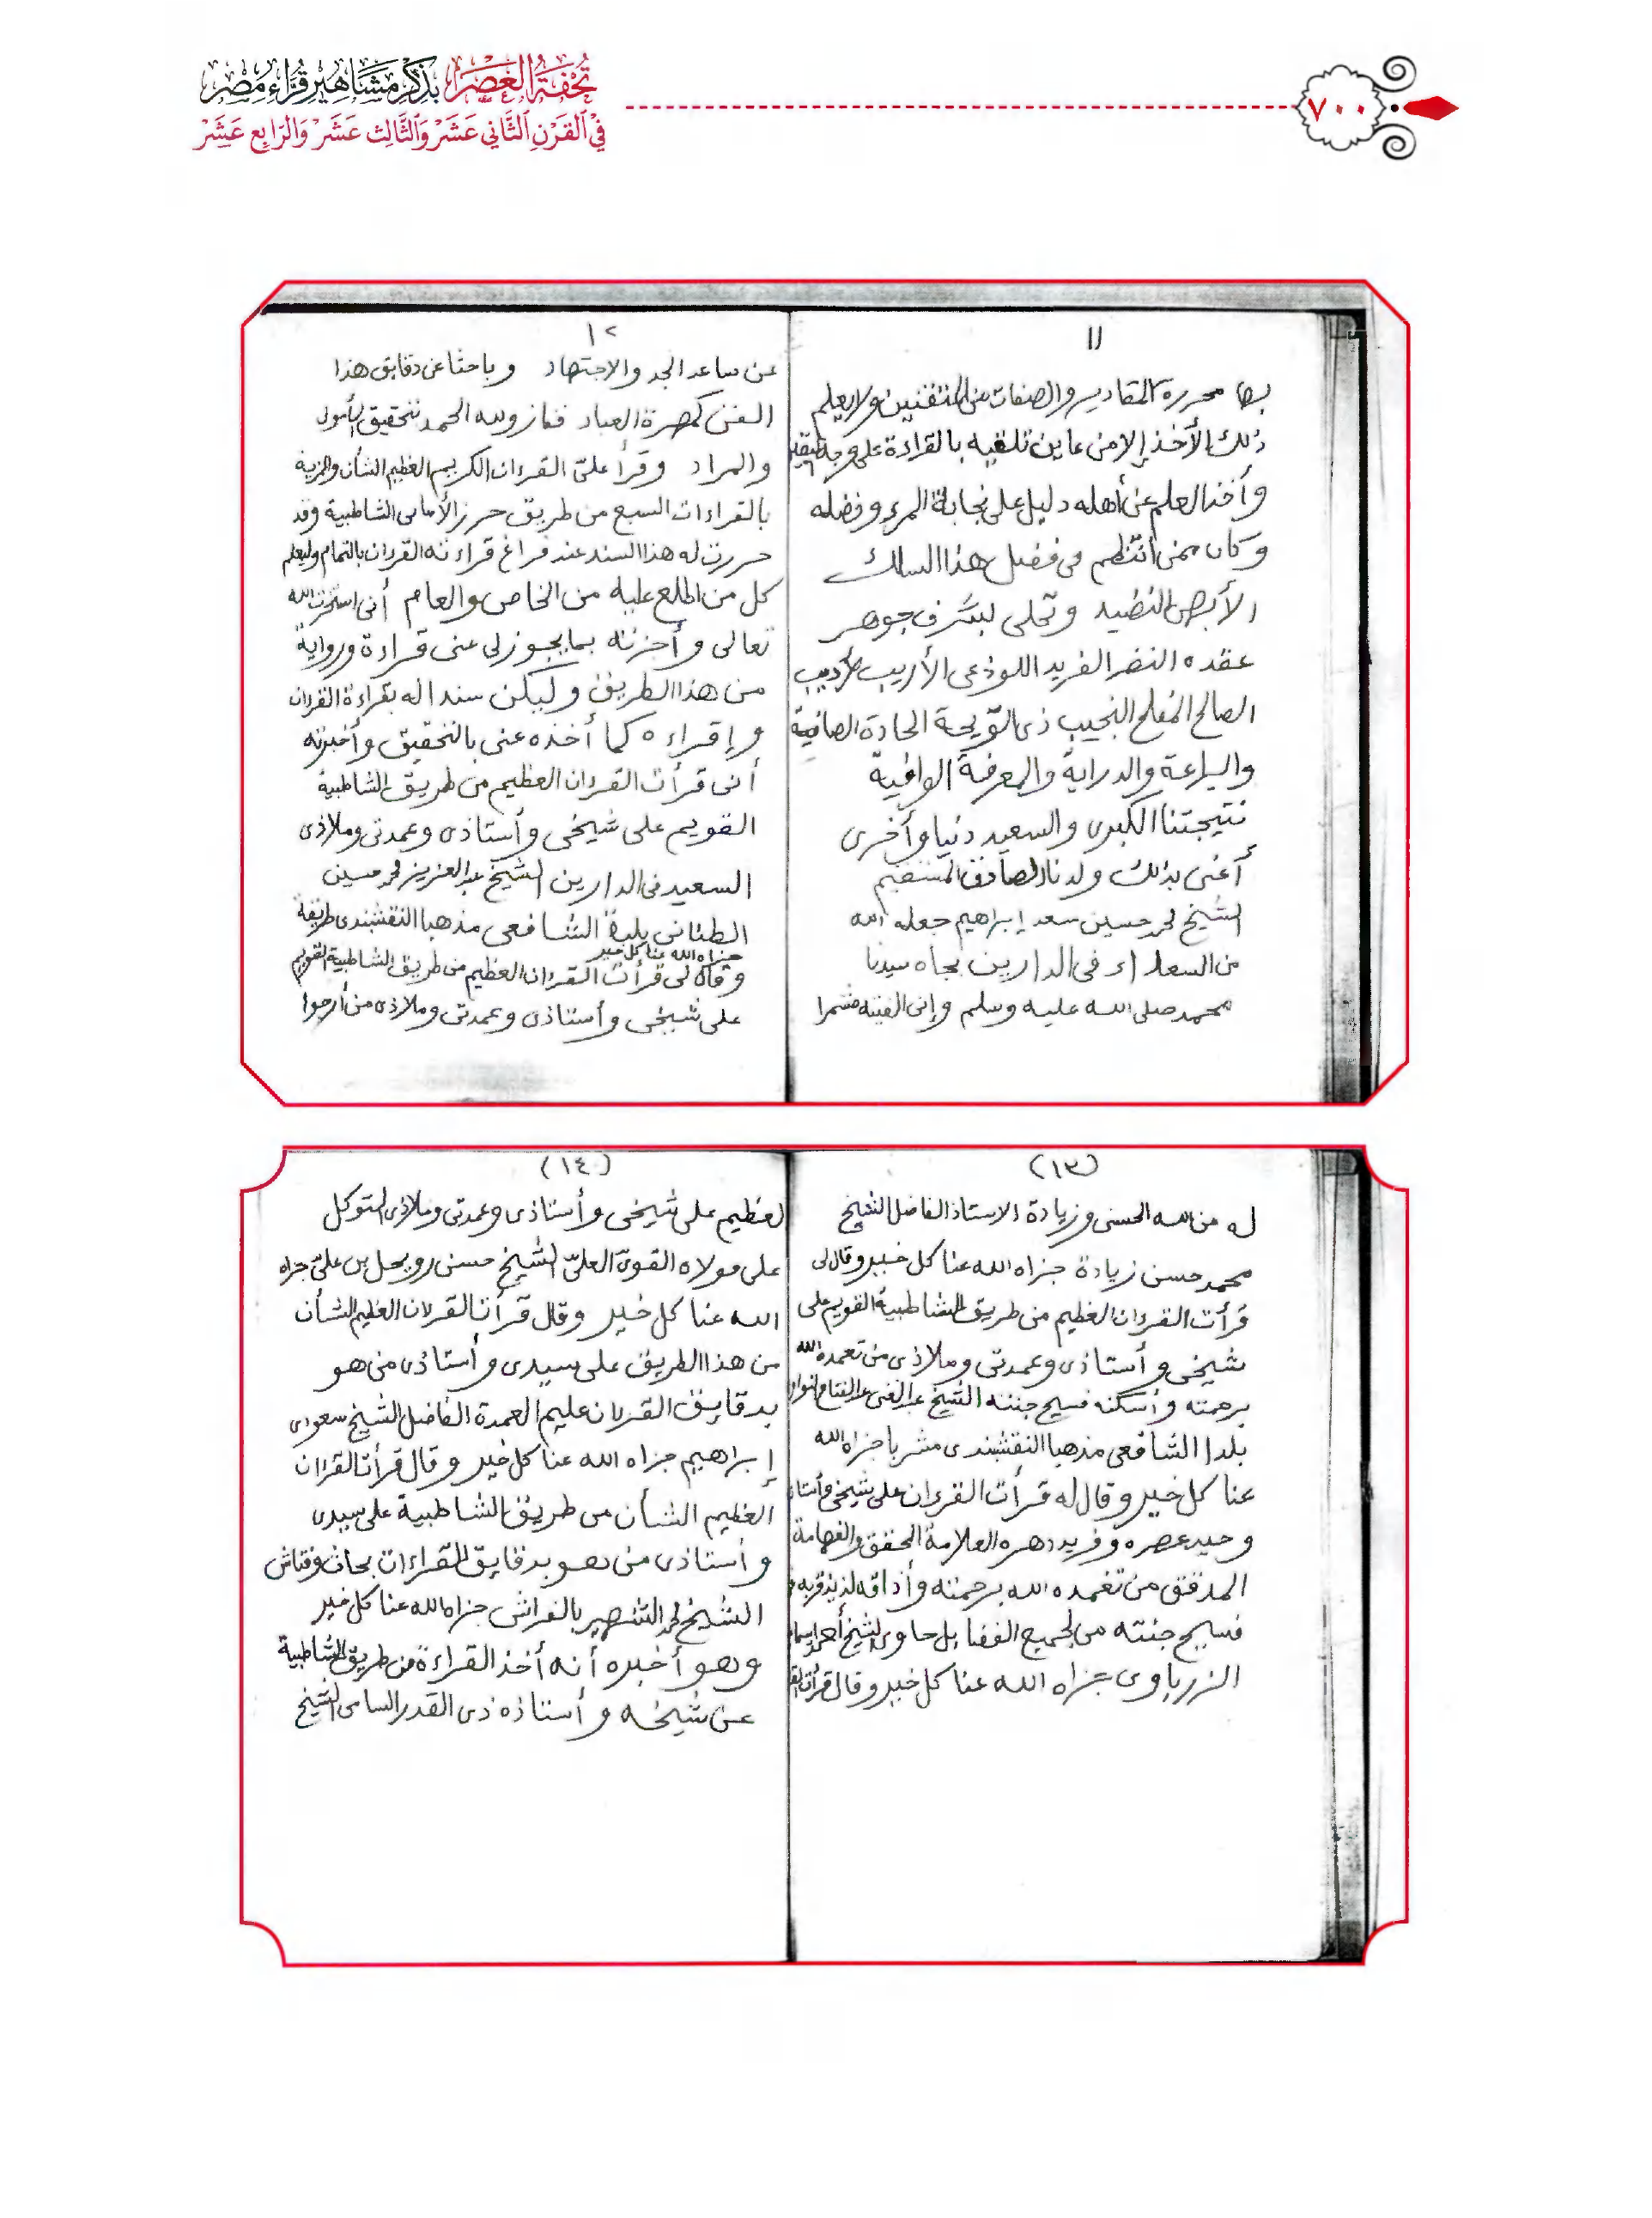 تُحْفَةُ العَصْرِ بِذِكْرِ مَشَاهِيرِ قُرَّاءِ مِصْرَ
فِي القَرْنِ الثَّانِي عَشَرَ وَالثَّالِث عَشَرَ وَالرَّابِع عَشَرَ
٧٠٠
١١
بها محررة المقادير والصفات من المتقنين ولا يعلم
ذلك الأخذ إلا من عاين تلقيه بالقراءة على وجه
وأخذ العلم عن أهله دليل على نجابة المرء وفضله
وكان ممن انتظم في هذا السلك
الأبهى النضيد وتحلى بشرف جوهر
عقده النضر الفريد اللوذعى الأريب الأديب
الصالح المفلح النجيب ذى القريحة الحادة الصافية
والبراعة والدراية والمعرفة الوافية
نتيجتنا الكبرى والسعيد دنيا وأخرى
أعنى بذلك ولدنا الصادق المستقيم
الشيخ محمد حسين سعد إبراهيم جعله الله
من السعداء فى الدارين بجاه سيدنا
محمد صلى الله عليه وسلم وإنى الفيته مشمرا
١٢
عن ساعد الجد والاجتهاد وباحثا عن دقايق هذا
الفن كمهرة العباد ففاز ولله الحمد بتحقيق المأمول
والمراد وقرأ علىّ القرءان الكريم العظيم الشأن والمزية
بالقراءات السبع من طريق حرز الأمانى الشاطبية وقد
حررت له هذا السند عند فراغ قراءته القرءان بالتمام وليعلم
كل من اطلع عليه من الخاص والعام أنى استخرت الله
تعالى وأجزته بما يجوز لى عنى قراءة ورواية
من هذا الطريق وليكن سندا له بقراءة القرءان
وإقراءه كما أخذه عنى بالتحقيق وأخبرته
أنى قرأت القرءان العظيم من طريق الشاطبية
القويم على شيخى وأستاذى وعمدتى وملاذى
السعيد فى الدارين الشيخ عبد العزيز محمد حسين
بلدة الشافعى مذهبا النقشبندى طريقة
جزاه الله عنا كل خير
وقال لى قرأت القرءان العظيم من طريق الشاطبية القويم
على شيخى وأستاذى وعمدتى وملاذى من أرجوا
(١٣)
له من الله الحسنى وزيادة الاستاذ الفاضل الشيخ
محمد حسن زيادة جزاه الله عنا كل خير وقال لى
قرأت القرءان العظيم من طريق الشاطبية القويم على
شيخى وأستاذى وعمدتى وملاذى من تغمده الله
برحمته وأسكنه فسيح جنته الشيخ عبد الغنى عبد الفتاح
بلدا الشافعى مذهبا النقشبندى مشربا جزاه الله
عنا كل خير وقال له قرأت القرءان على شيخى وأستاذ
وحيد عصره وفريد دهره العلامة المحقق والفهامة
المدقق من تغمده الله برحمته وأذاقه لذيذ قربه
فسيح جنته من لجميع الفضايل حاوى الشيخ أحمد
الزرباوى جزاه الله عنا كل خير وقال قرأت
(١٤)
العظيم على شيخى وأستاذى وعمدتى وملاذى المتوكل
على مولاه القوى العلىّ الشيخ حسنى رويحل بن علىّ جزاه
الله عنا كل خير وقال قرأت القرءان العظيم الشأن
من هذا الطريق على سيدى وأستاذى من هو
بدقايق القرءان عليم العمدة الفاضل الشيخ سعودى
إبراهيم جزاه الله عنا كل خير وقال قرأت القرءان
العظيم الشأن من طريق الشاطبية على سيدى
وأستاذى من هو بدقايق القراءات بحاث وفتاش
الشيخ محمد الشهير بالفراش جزاه الله عنا كل خير
وهو أخبره أنه أخذ القراءة من طريق الشاطبية
عن شيخه وأستاذه ذى القدر السامى الشيخ